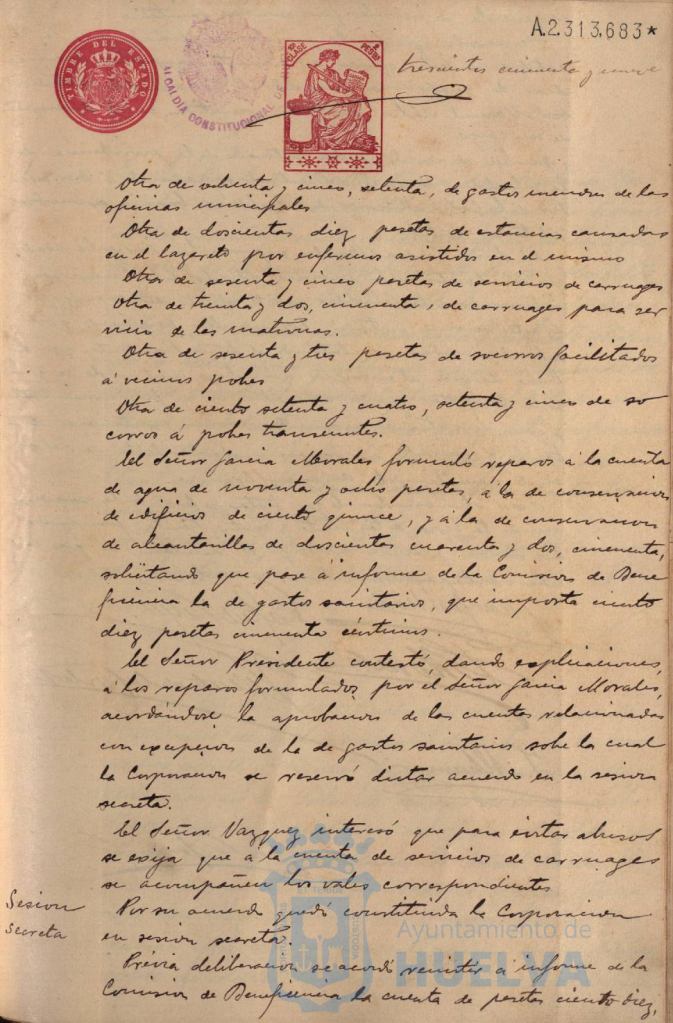 A.2.313.683*
TIMBRE DEL ESTADO
ALCALDIA CONSTITUCIONAL DE
CLASE
trescientos cincuenta y nueve
Otra de ochenta y cinco, setenta, de gastos menores de las
oficinas municipales
Otra de doscientas diez pesetas de estancias causadas
en el lazareto por enfermos asistidos en el mismo
Otra de sesenta y cinco pesetas de servicios de carruages
Otra de treinta y dos, cincuenta, de carruages para ser
vicio de las matronas.
Otra de sesenta y tres pesetas de socorros facilitados
á vecinos pobres
Otra de ciento setenta y cuatro, setenta y cinco de so
corros á pobres transeuntes.
El Señor Garcia Morales formuló reparos á la cuenta
de agua de noventa y ocho pesetas, á la de conservacion
de edificios de ciento quince, y á la de conservacion
de alcantarillas de doscientas cuarenta y dos, cincuenta,
solicitando que pase á informe de la Comision de Bene
ficencia la de gastos sanitarios, que importa ciento
diez pesetas cincuenta céntimos.
El Señor Presidente contestó, dando explicaciones,
á los reparos formulados por el Señor Garcia Morales,
acordándose la aprobacion de las cuentas relacionadas
con excepcion de la de gastos sanitarios sobre la cual
la Corporacion se reservó dictar acuerdo en la sesion
secreta.
El Señor Vazquez interesó que para evitar abusos
se exija que á la cuenta de servicios de carruages
se acompañen los vales correspondientes
Sesion
secreta
Por su acuerdo quedó constituida la Corporacion
en sesion secreta.
Prévia deliberacion se acordó remitir á informe de la
Comision de Beneficencia la cuenta de pesetas ciento diez,
Ayuntamiento de
HUELVA